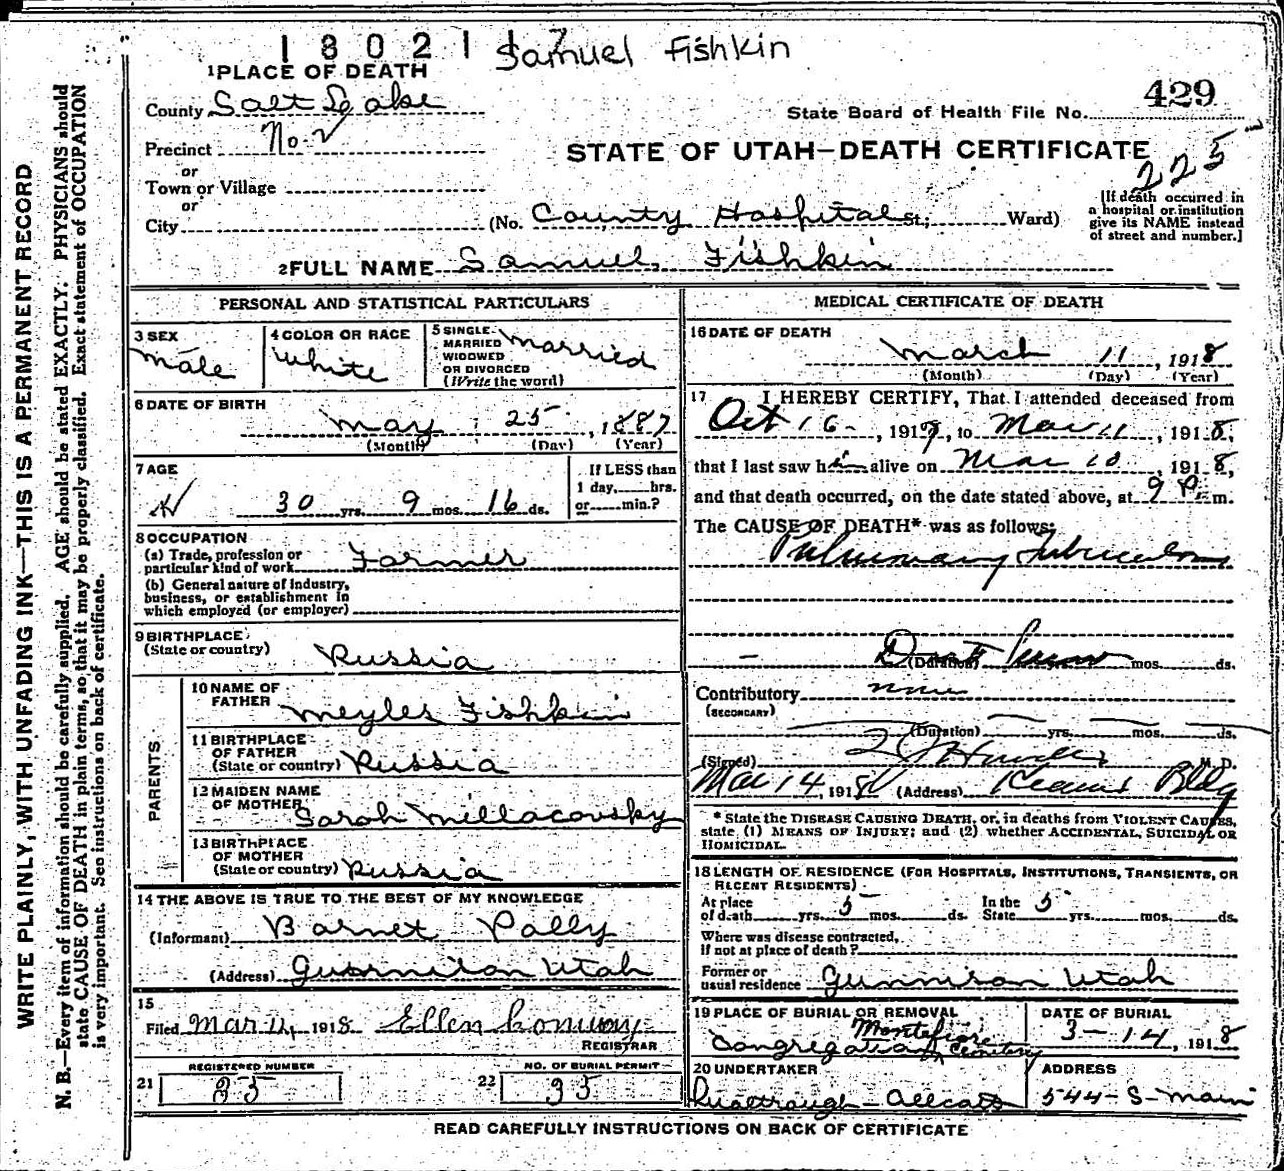 1 8 0 2 1 1 7 Samuel Fishkin
1 PLACE OF DEATH
County Salt Lake
429
State Board of Health File No.
Precinct No. 2
or
STATE OF UTAH—DEATH CERTIFICATE
225
Town or Village
or
City
(No. County Hospital St; Ward)
[If death occurred in
a hospital or institution
give its NAME instead
of street and number.]
2 FULL NAME Samuel Fishkin
PERSONAL AND STATISTICAL PARTICULARS
3 SEX
Male
4 COLOR OR RACE
White
5 SINGLE
MARRIED
WIDOWED
OR DIVORCED
(Write the word)
Married
6 DATE OF BIRTH
May 25, 1887
(Month) (Day) (Year)
7 AGE
30 yrs. 9 mos. 16 ds.
If LESS than
1 day, hrs.
or min.?
8 OCCUPATION
(a) Trade, profession or
particular kind of work Farmer
(b) General nature of industry,
business, or establishment in
which employed (or employer)
9 BIRTHPLACE
(State or country)
Russia
PARENTS
10 NAME OF
FATHER Meyles Fishkin
11 BIRTHPLACE
OF FATHER
(State or country) Russia
12 MAIDEN NAME
OF MOTHER Sarah Millacovsky
13 BIRTHPLACE
OF MOTHER
(State or country) Russia
14 THE ABOVE IS TRUE TO THE BEST OF MY KNOWLEDGE
(Informant) Barnet Pally
(Address) Utah
15
Filed Mar 1918 Ellen Conway
REGISTRAR
REGISTERED NUMBER
21 35
NO. OF BURIAL PERMIT
22 35
MEDICAL CERTIFICATE OF DEATH
16 DATE OF DEATH
March 11, 1918
(Month) (Day) (Year)
17 I HEREBY CERTIFY, That I attended deceased from
Oct 16, 1917, to Mar 11, 1918,
that I last saw him alive on Mar 10, 1918,
and that death occurred, on the date stated above, at 9 P. m.
The CAUSE OF DEATH* was as follows:
Pulmonary Tuberculosis
(Duration) mos. ds.
Contributory none
(SECONDARY)
(Duration) yrs. mos. ds.
(Signed) M. D.
Mar 14, 1918 (Address) Kearns Bldg
* State the DISEASE CAUSING DEATH, or, in deaths from VIOLENT CAUSES,
state (1) MEANS OF INJURY; and (2) whether ACCIDENTAL, SUICIDAL OR
HOMICIDAL.
18 LENGTH OF RESIDENCE (FOR HOSPITALS, INSTITUTIONS, TRANSIENTS, OR
RECENT RESIDENTS)
At place
of death yrs. 5 mos. ds. In the
State 5 yrs. mos. ds.
Where was disease contracted,
If not at place of death?
Former or
usual residence Gunnison Utah
19 PLACE OF BURIAL OR REMOVAL
Congregation Montefiore
Cemetery
DATE OF BURIAL
3-14, 1918
20 UNDERTAKER
ADDRESS
544-S-Main
READ CAREFULLY INSTRUCTIONS ON BACK OF CERTIFICATE
WRITE PLAINLY, WITH UNFADING INK—THIS IS A PERMANENT RECORD
N. B.—Every item of information should be carefully supplied. AGE should be stated EXACTLY. PHYSICIANS should
state CAUSE OF DEATH in plain terms, so that it may be properly classified. Exact statement of OCCUPATION
is very important. See instructions on back of certificate.